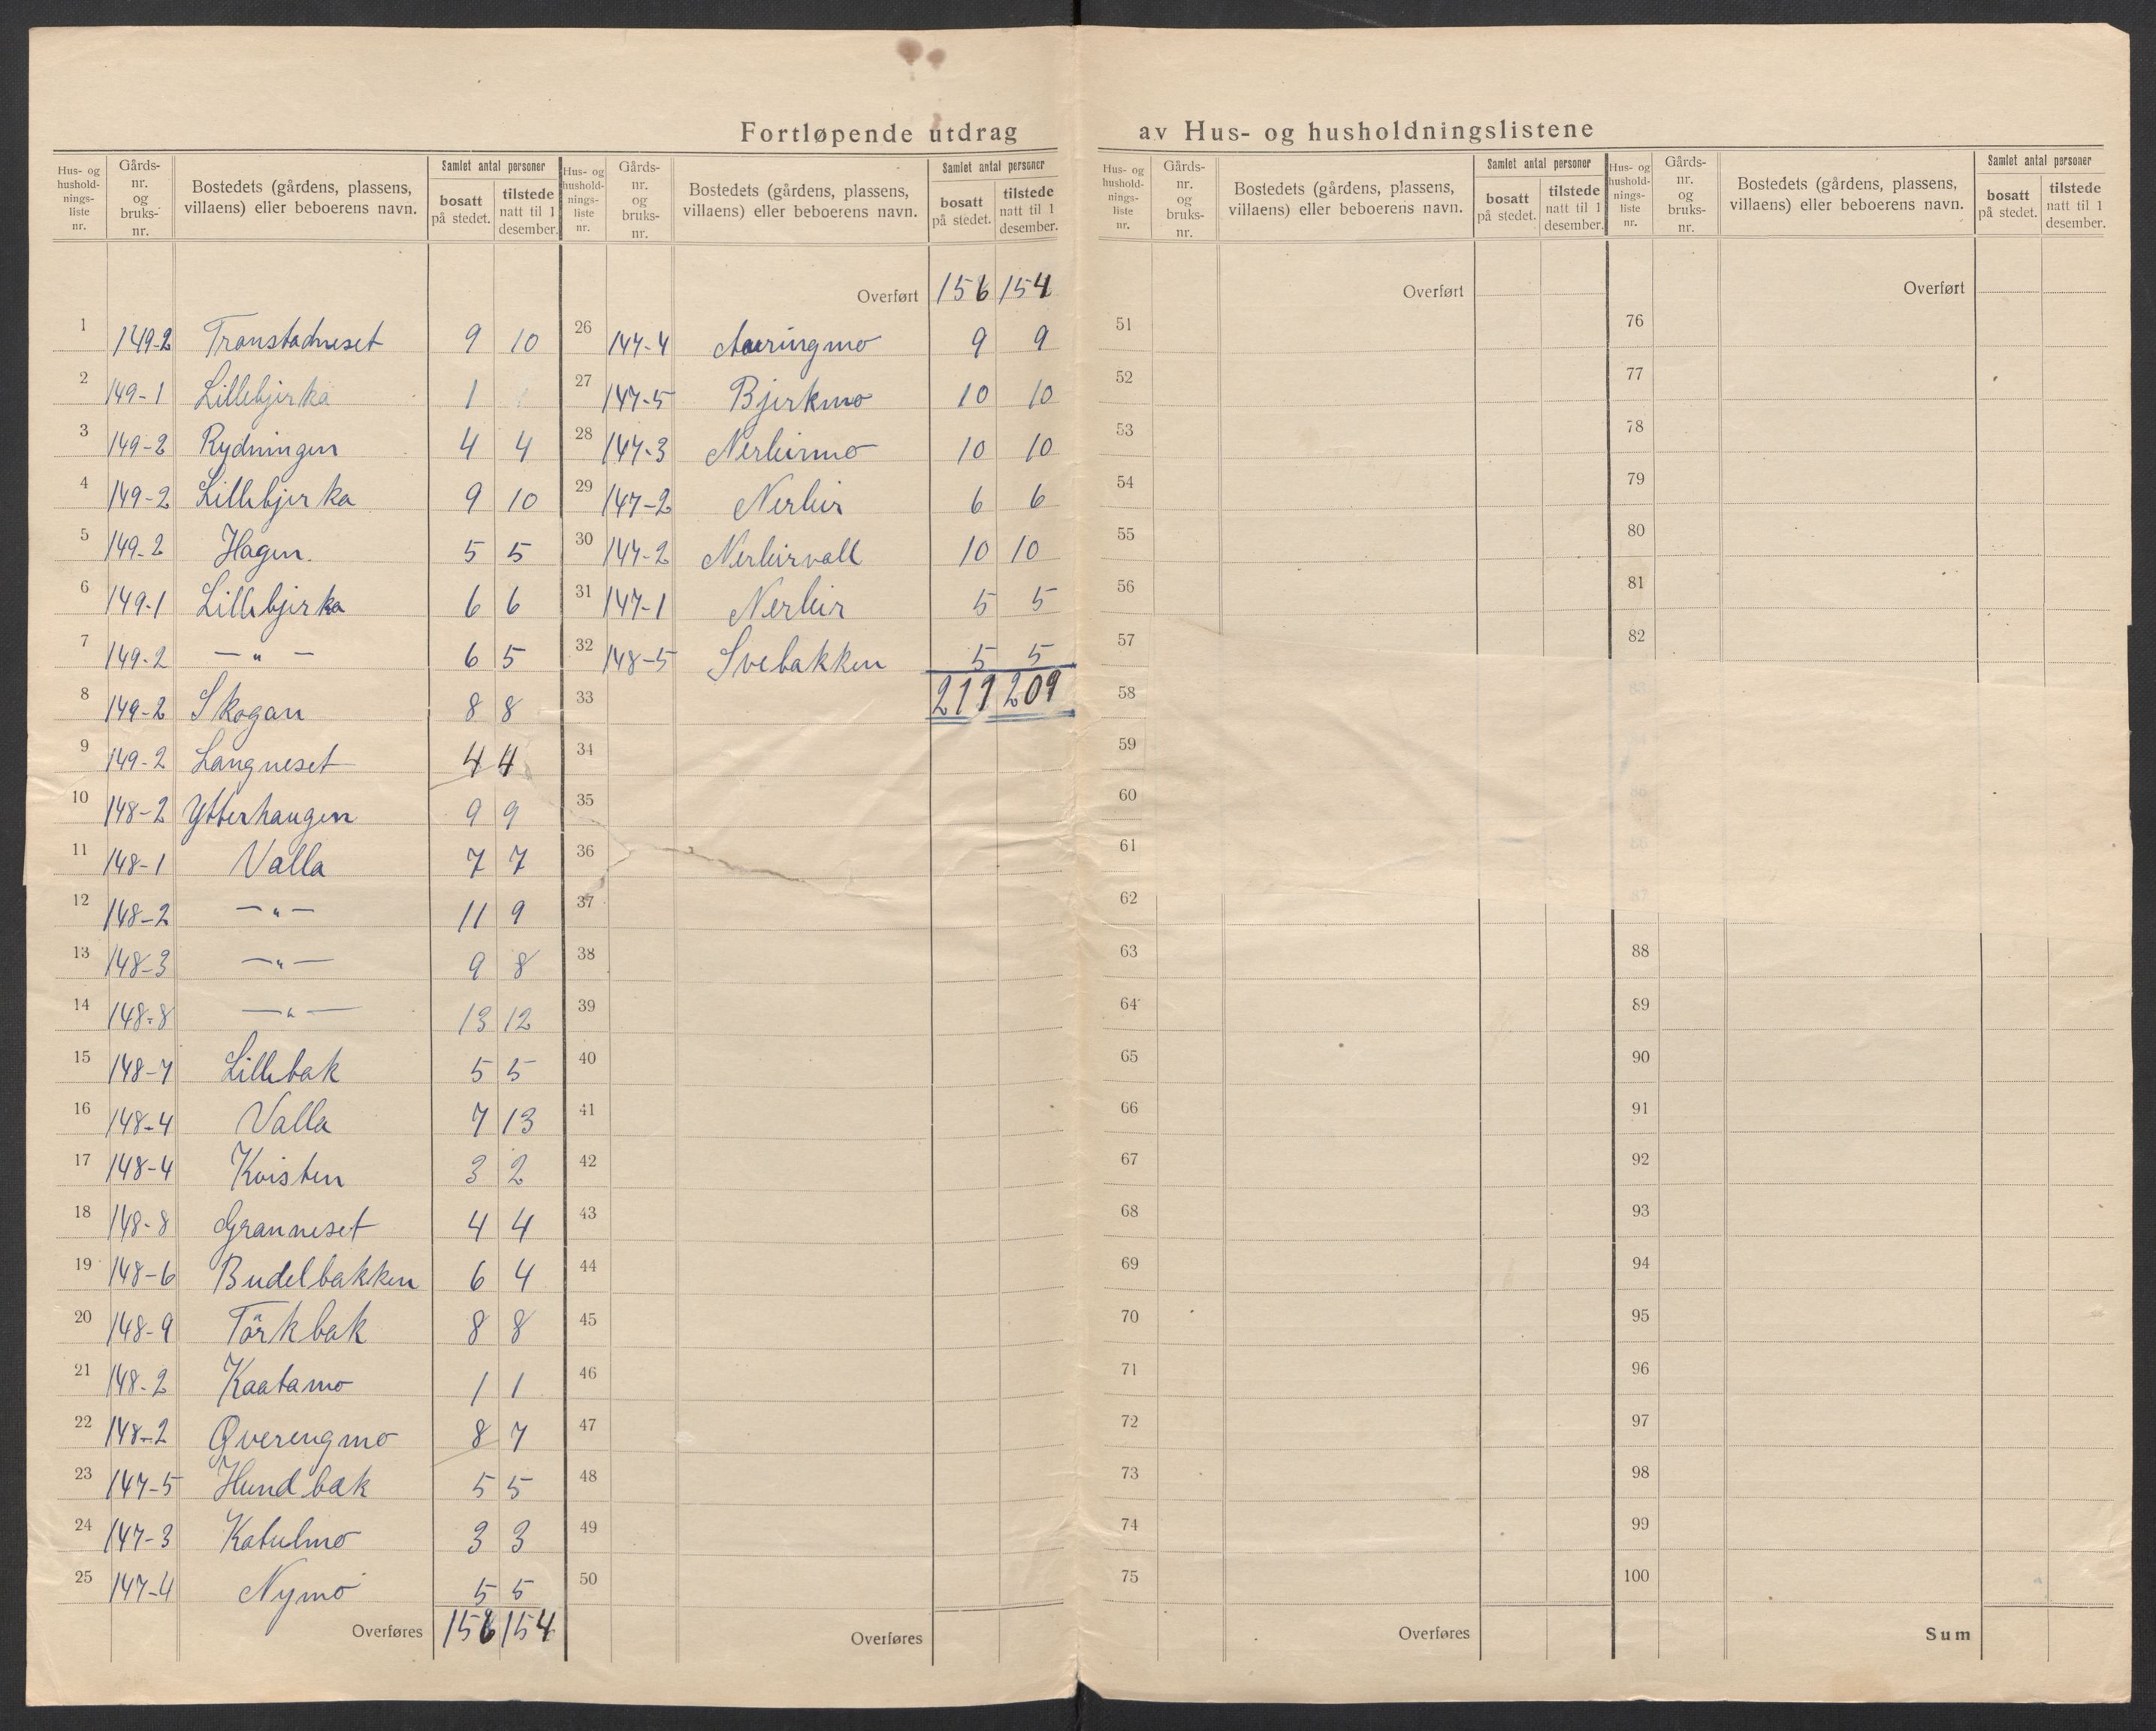 Fortløpende utdrag av Hus- og husholdningslistene
Hus- og hushold-nings-liste nr. | Gårds-nr. og bruks-nr. | Bostedets (gårdens, plassens, villaens) eller beboerens navn. | Samlet antal personer | bosatt på stedet. | tilstede natt til 1 desember.
1 149-2 Tronstadneset 9 10
2 149-1 Lillebjerka 1 1
3 149-2 Rydningen 4 4
4 149-2 Lillebjerka 9 10
5 149-2 Hagen. 5 5
6 149-1 Lillebjerka 6 6
7 149-2 — " — 6 5
8 149-2 Skogan 8 8
9 149-2 Langneset 4 4
10 148-2 Ytterhaugen 9 9
11 148-1 Valla 7 7
12 148-2 — " — 11 9
13 148-3 — " — 9 8
14 148-8 — " — 13 12
15 148-7 Lillebak 5 5
16 148-4 Valla 7 13
17 148-4 Kvisten 3 2
18 148-8 Granneset 4 4
19 148-6 Budelbakken 6 4
20 148-9 Törkbak 8 8
21 148-2 Kaatamo 1 1
22 148-2 Overengmo 8 7
23 147-5 Hundbak 5 5
24 147-3 Katulmo 3 3
25 147-4 Nymo 5 5
Overføres 156 154
Hus- og hushold-nings-liste nr. | Gårds-nr. og bruks-nr. | Bostedets (gårdens, plassens, villaens) eller beboerens navn. | Samlet antal personer | bosatt på stedet. | tilstede natt til 1 desember.
Overført 156 154
26 147-4 9 9
27 147-5 Bjerkmo 10 10
28 147-3 Nerleirmo 10 10
29 147-2 Nerleir 6 6
30 147-2 Nerleirvall 10 10
31 147-1 Nerleir 5 5
32 148-5 Svebakken 5 5
33 211 209
34
35
36
37
38
39
40
41
42
43
44
45
46
47
48
49
50
Overføres
Hus- og hushold-nings-liste nr. | Gårds-nr. og bruks-nr. | Bostedets (gårdens, plassens, villaens) eller beboerens navn. | Samlet antal personer | bosatt på stedet. | tilstede natt til 1 desember.
Overført
51
52
53
54
55
56
57
58
59
60
61
62
63
64
65
66
67
68
69
70
71
72
73
74
75
Overføres
Hus- og hushold-nings-liste nr. | Gårds-nr. og bruks-nr. | Bostedets (gårdens, plassens, villaens) eller beboerens navn. | Samlet antal personer | bosatt på stedet. | tilstede natt til 1 desember.
Overført
76
77
78
79
80
81
82
83
84
85
86
87
88
89
90
91
92
93
94
95
96
97
98
99
100
Sum